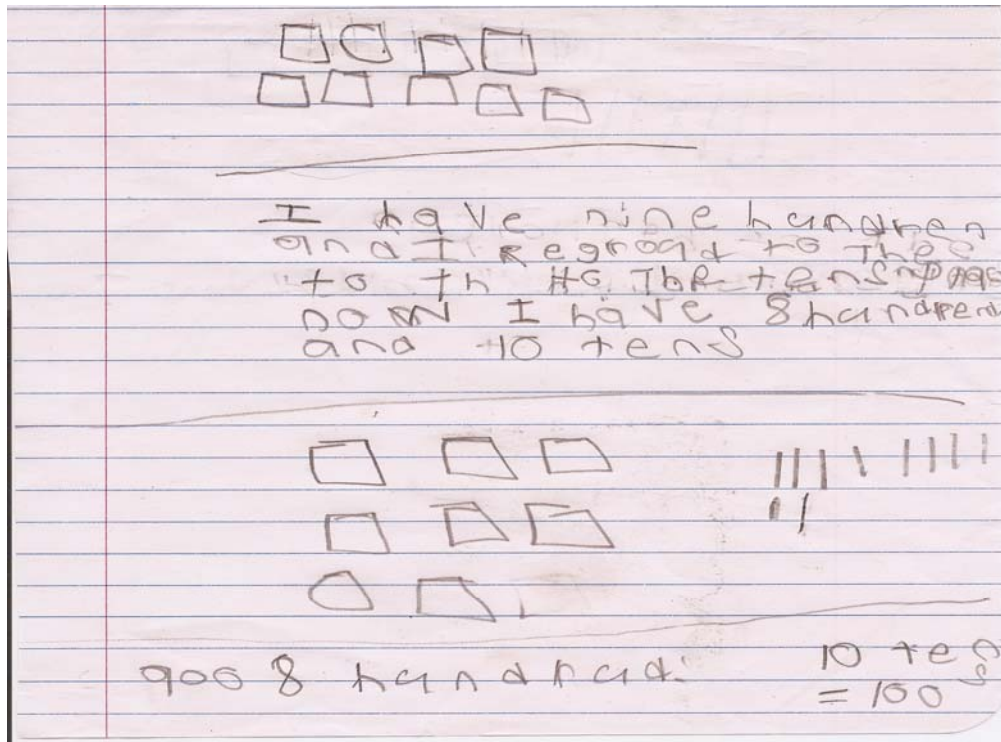 I have nine hundren
and I Regroat to The
to th to The tens
now I have 8 hundrend
and 10 tens
900 8 handrad
10 tens
= 100